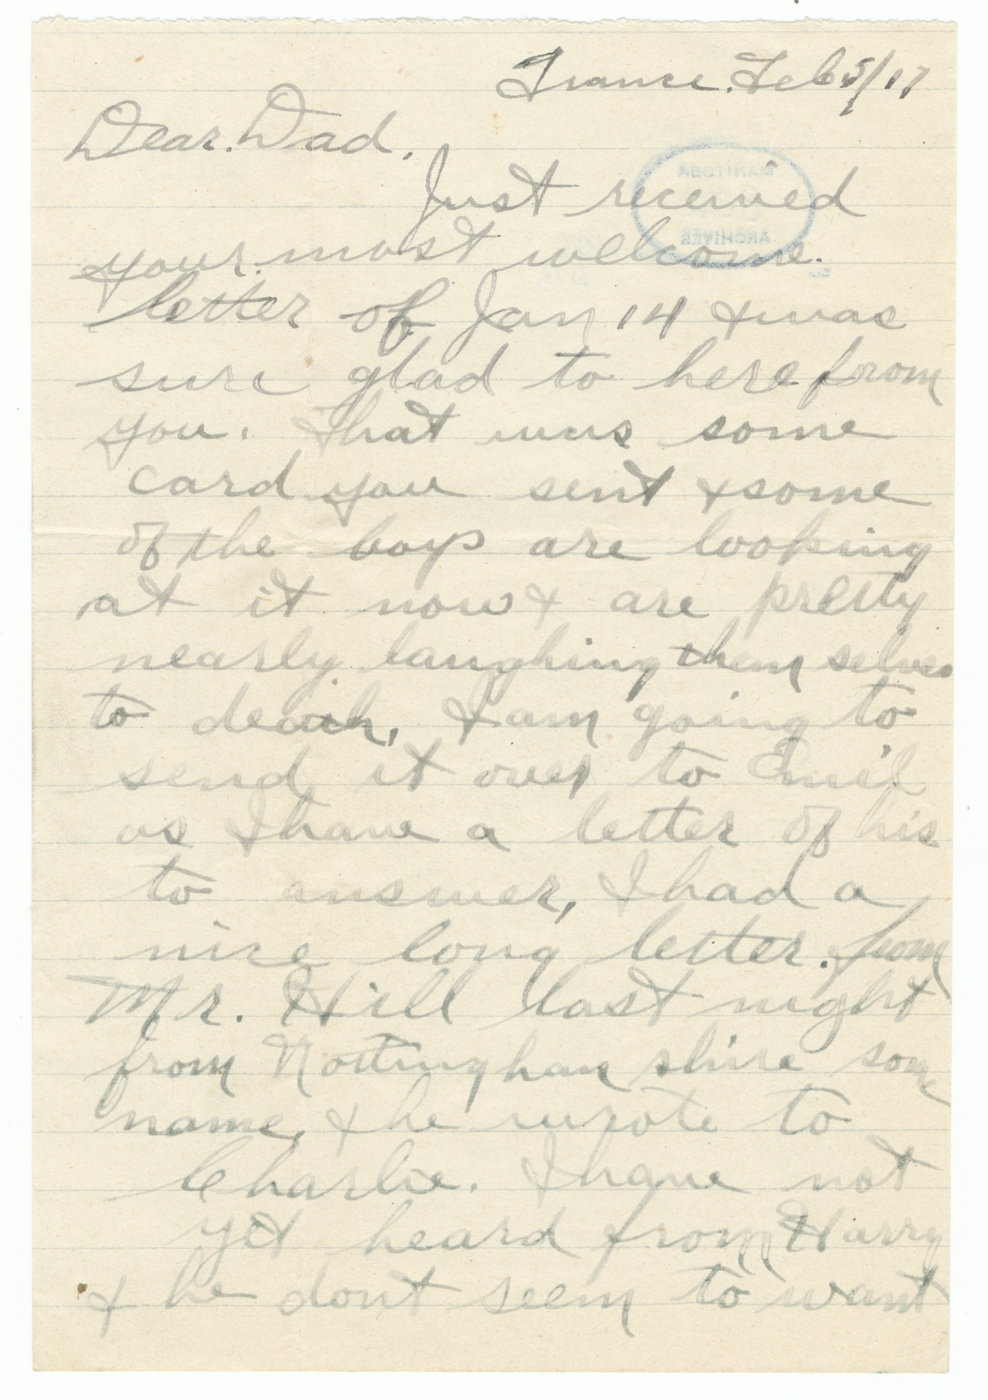 France. Feb 5/17
Dear. Dad.
Just received
your. most welcome.
letter of Jan 14 & was
sure glad to here from
you. That was some
card you sent & some
of the boys are looking
at it now & are pretty
nearly laughing them selves
to death, I am going to
send it over to Emil
as I have a letter of his
to answer, I had a
nice long letter. from
Mr. Hill last night
from Nottinghamshire some
name, & he wrote to
Charlie. I have not
yet heard from Harry
& he dont seem to want
MANITOBA
ARCHIVES